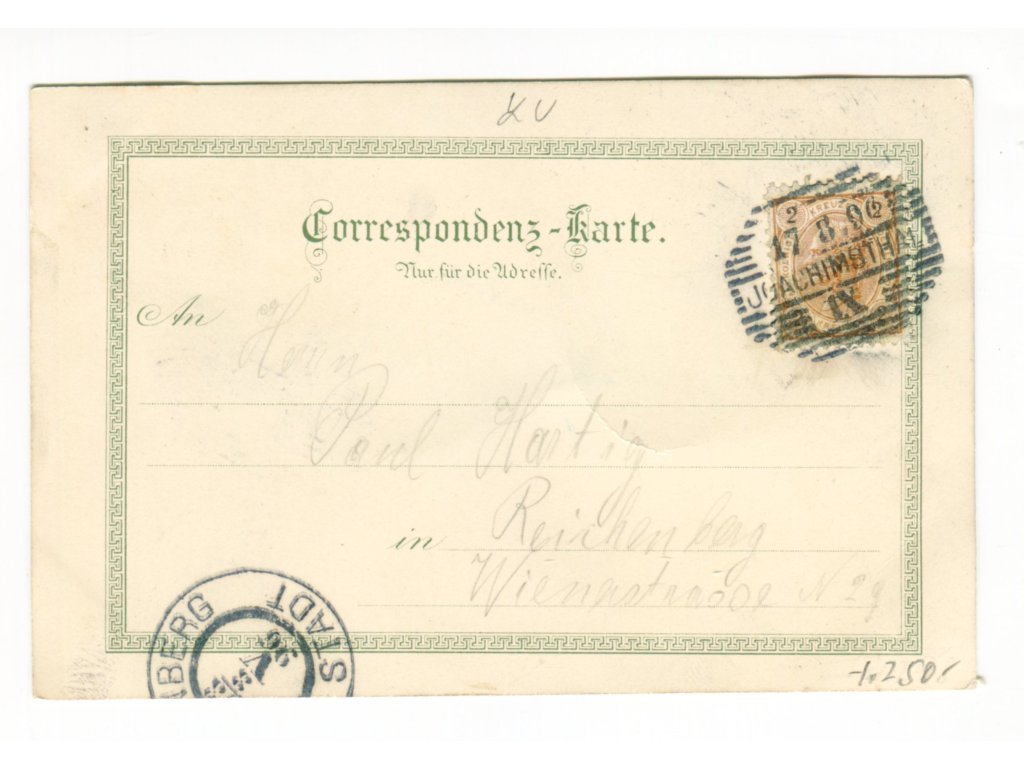 KV
Correspondenz-Karte.
Nur für die Adresse.
2 KREUZ 2
17 8.96
JOACHIMSTHAL
IX
An
Herrn
Paul Hartig
in Reichenberg
Wienerstrasse N 29
BERG STADT
96
1.250,-